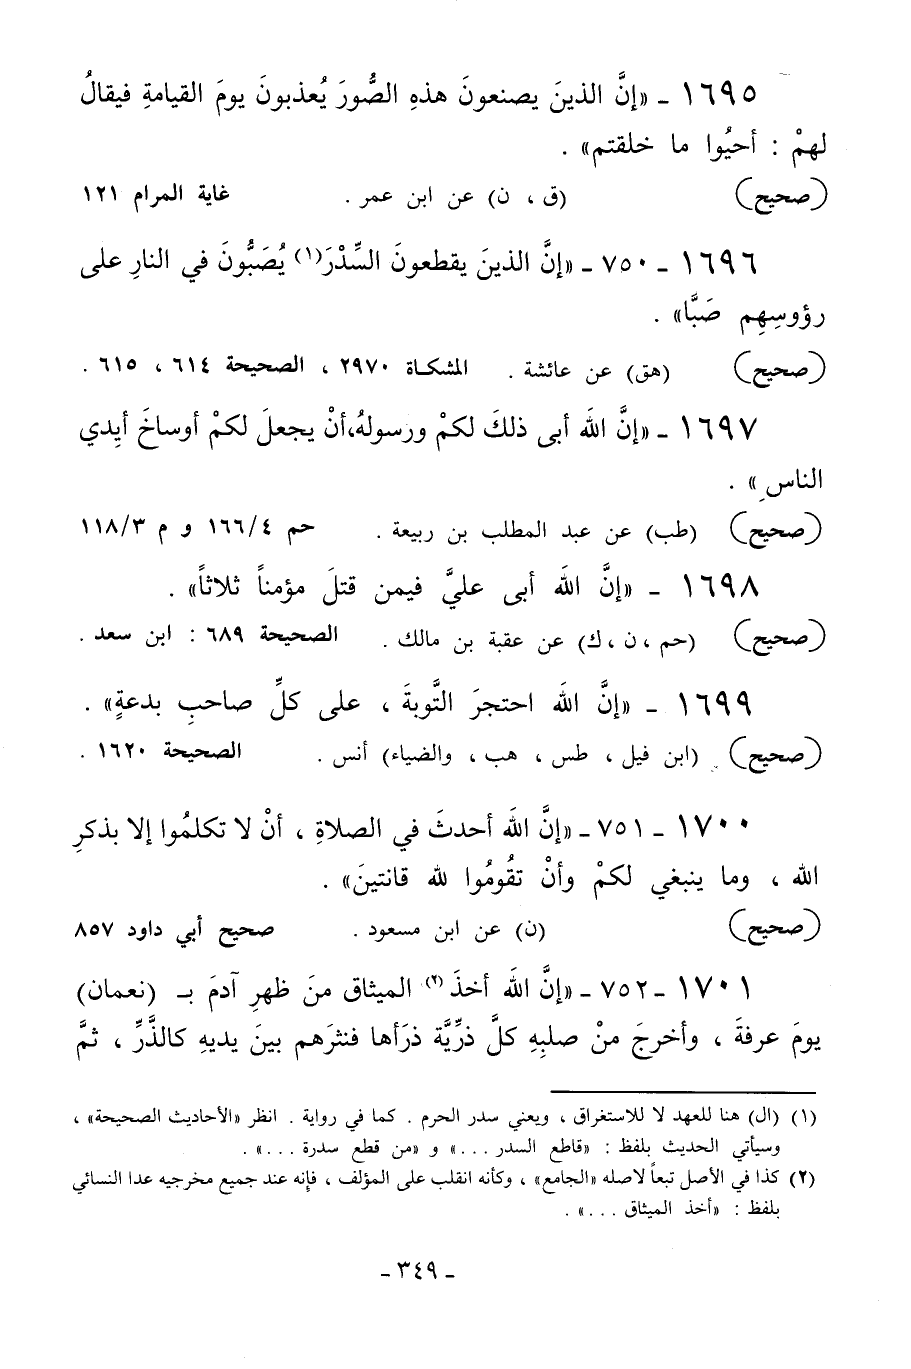 ١٦٩٥ ـ «إنَّ الذينَ يصنعونَ هذهِ الصُّورَ يُعذبونَ يومَ القيامةِ فيقالُ
لهمْ : أحيُوا ما خلقتم» .
(صحيح) (ق ، ن) عن ابن عمر . غاية المرام ١٢١
١٦٩٦ ـ ٧٥٠ ـ «إنَّ الذينَ يقطعونَ السِّدْرَ(١) يُصَبُّونَ في النارِ على
رؤوسِهِم صَبَّا» .
(صحيح) (هق) عن عائشة . المشكاة ٢٩٧٠ ، الصحيحة ٦١٤ ، ٦١٥ .
١٦٩٧ ـ «إنَّ اللهَ أبى ذلكَ لكمْ ورسولهُ،أنْ يجعلَ لكمْ أوساخَ أيِدي
الناسِ» .
(صحيح) (طب) عن عبد المطلب بن ربيعة . حم ١٦٦/٤ و م ١١٨/٣
١٦٩٨ ـ «إنَّ اللهَ أبى عليَّ فيمن قتلَ مؤمناً ثلاثاً» .
(صحيح) (حم ، ن ، ك) عن عقبة بن مالك . الصحيحة ٦٨٩ : ابن سعد .
١٦٩٩ ـ «إنَّ اللهَ احتجرَ التَّوبةَ ، على كلِّ صاحبِ بدعةٍ» .
(صحيح) (ابن فيل ، طس ، هب ، والضياء) أنس . الصحيحة ١٦٢٠ .
١٧٠٠ ـ ٧٥١ ـ «إنَّ اللهَ أحدثَ في الصلاةِ ، أنْ لا تكلمُوا إلا بذكرِ
الله ، وما ينبغي لكمْ وأنْ تقُومُوا لله قانتينَ» .
(صحيح) (ن) عن ابن مسعود . صحيح أبي داود ٨٥٧
١٧٠١ ـ ٧٥٢ ـ «إنَّ اللهَ أخذَ(٢) الميثاق منَ ظهرِ آدمَ بـ (نعمان)
يومَ عرفةَ ، وأخرجَ منْ صلبِهِ كلَّ ذرِّيَّة ذرَأها فنثرَهم بينَ يديهِ كالذَّرِّ ، ثمَّ
(١) (ال) هنا للعهد لا للاستغراق ، ويعني سدر الحرم . كما في رواية . انظر «الأحاديث الصحيحة» ،
وسيأتي الحديث بلفظ : «قاطع السدر . . .» و «من قطع سدرة . . .» .
(٢) كذا في الأصل تبعاً لاصله «الجامع» ، وكأنه انقلب على المؤلف ، فإنه عند جميع مخرجيه عدا النسائي
بلفظ : «أخذ الميثاق . . .» .
ـ ٣٤٩ ـ